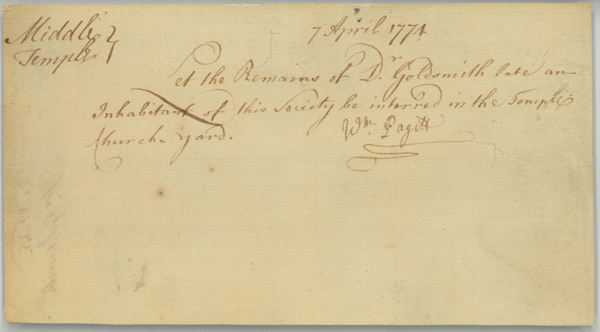 Middle
Temple }
7 April 1774
Let the Remains of Dr. Goldsmith late an
Inhabitant of this Society be interred in the Temple
Church-yard.
Wm. Pagitt